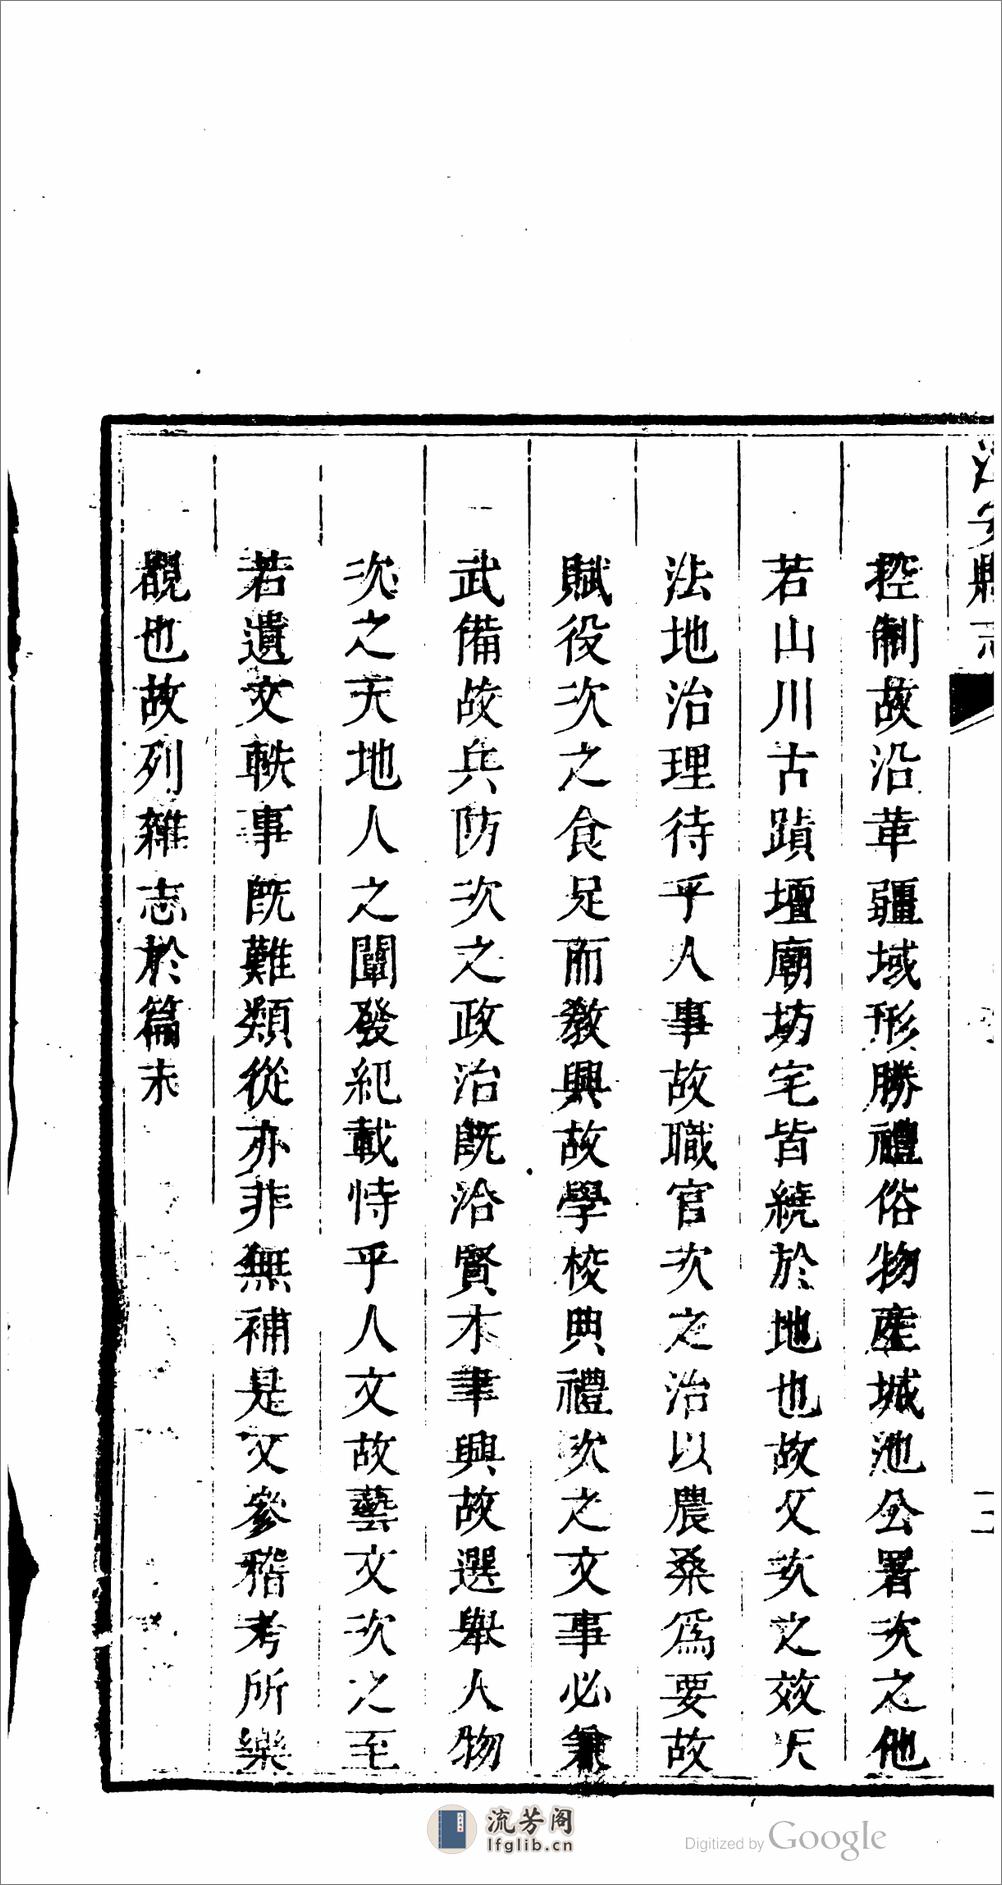 江安縣志
控制故沿革疆域形勝禮俗物產城池公署次之他
若山川古蹟壇廟坊宅皆繞於地也故又次之效天
法地治理待乎人事故職官次之治以農桑爲要故
賦役次之食足而敎興故學校典禮次之文事必兼
武備故兵防次之政治既洽賢才聿興故選舉人物
次之天地人之闡發紀載恃乎人文故藝文次之至
若遺文軼事既難類從亦非無補是又參稽考所樂
覩也故列雜志於篇末
流芳阁
lfglib.cn
Digitized by Google